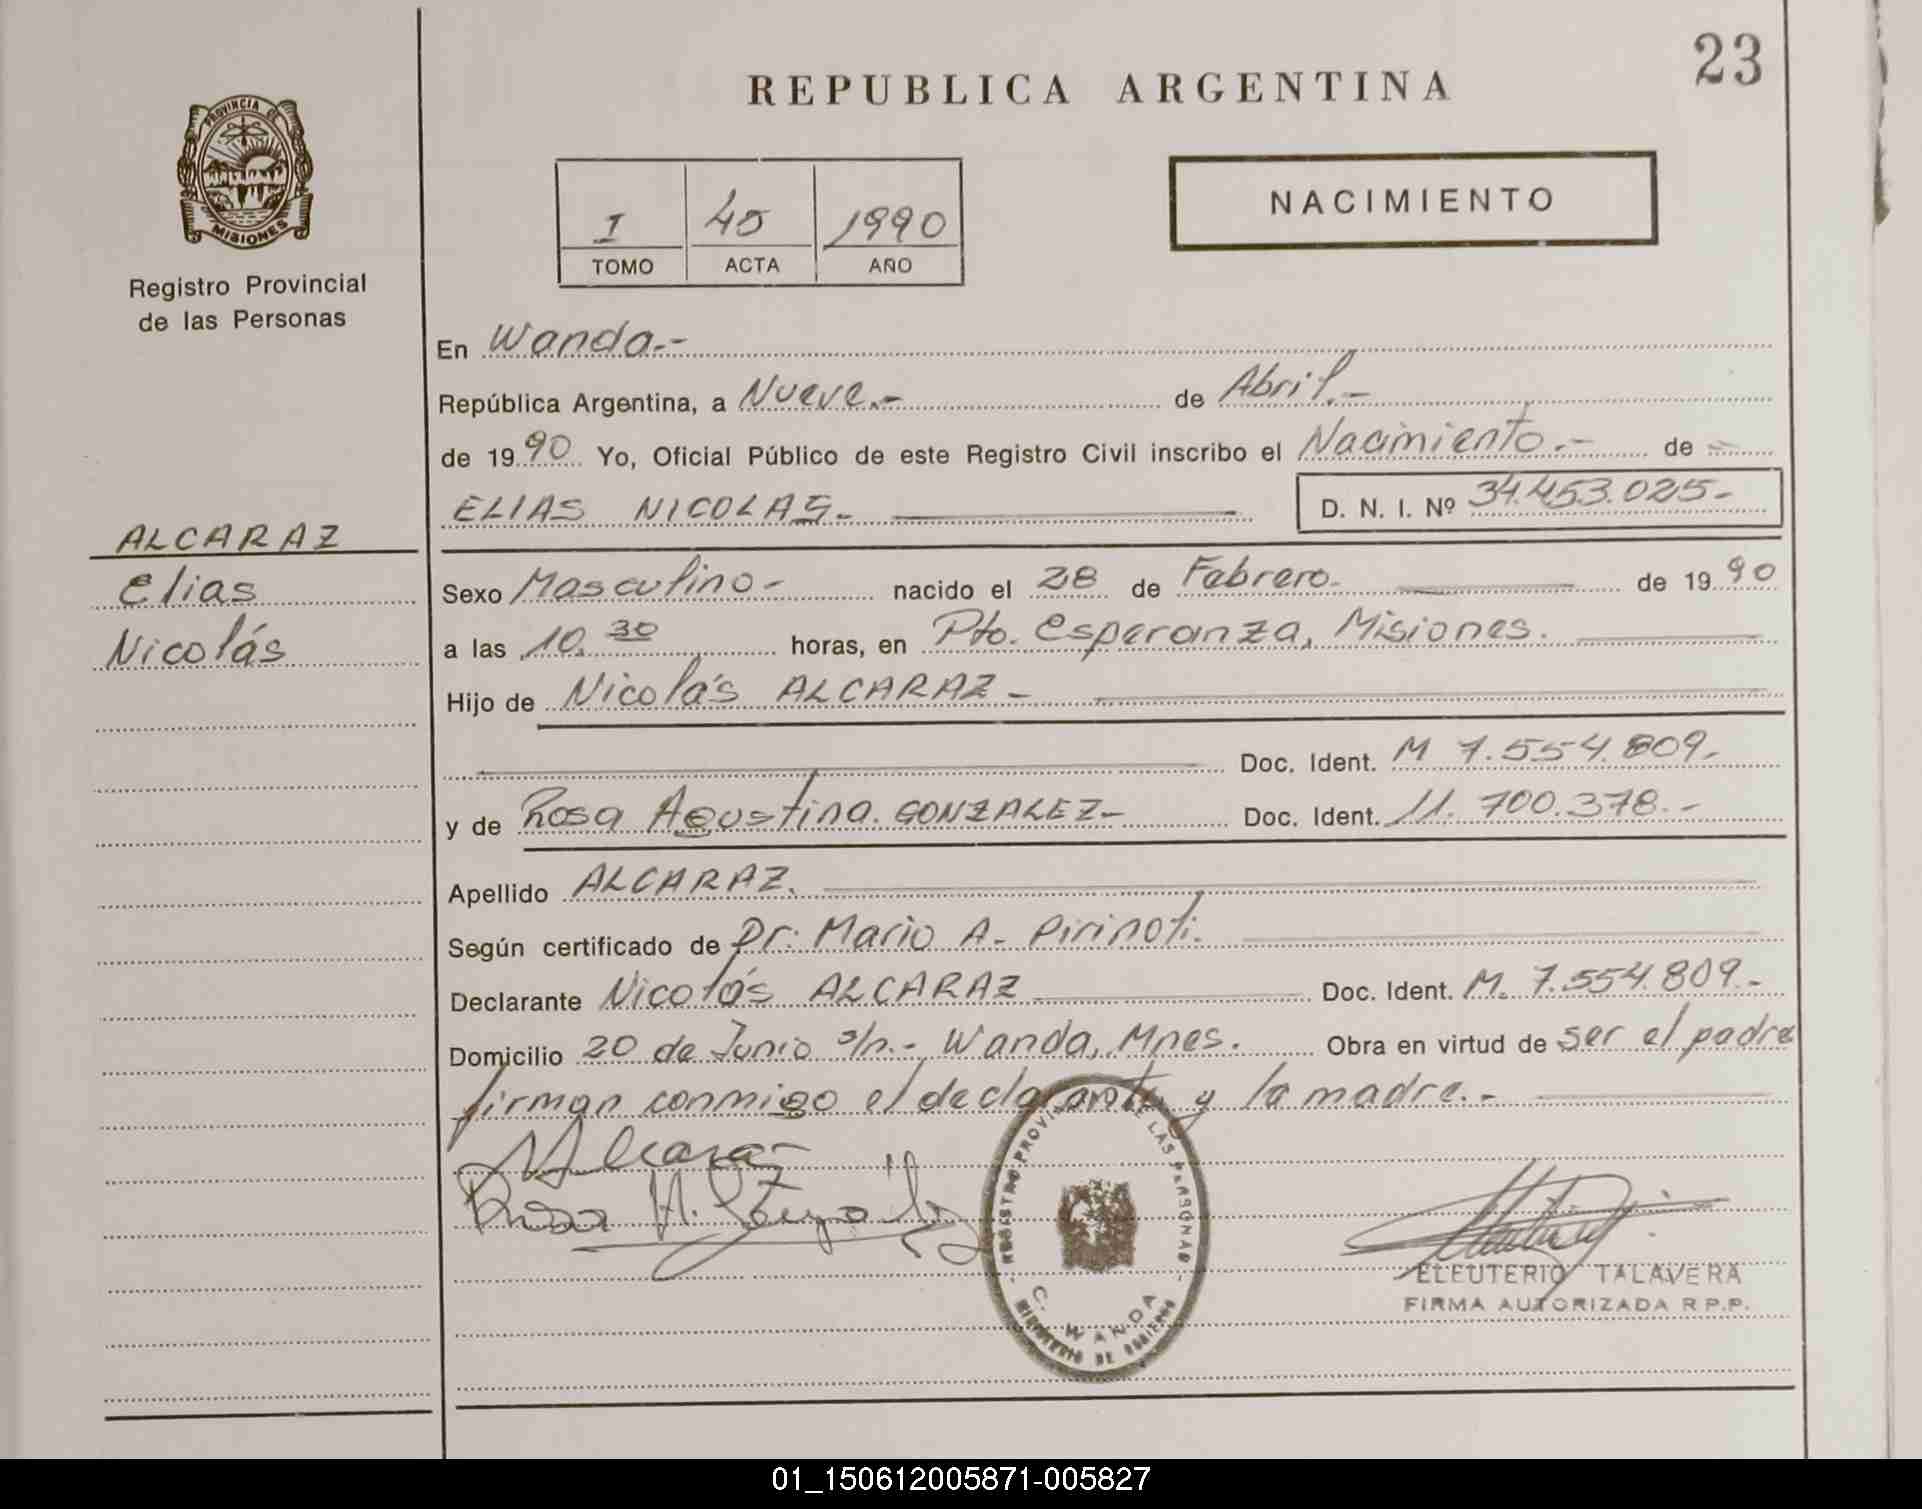 23
REPUBLICA ARGENTINA
PROVINCIA DE
MISIONES
Registro Provincial
de las Personas
I 45 1990
TOMO ACTA AÑO
NACIMIENTO
En Wanda.-
República Argentina, a Nueve.- de Abril.-
de 1990 Yo, Oficial Público de este Registro Civil inscribo el Nacimiento.- de -
ELIAS NICOLAS.- D. N. I. Nº 34.453.025-
ALCARAZ
Elias
Nicolás
Sexo Masculino- nacido el 28 de Febrero. de 1990
a las 10.30 horas, en Pto. Esperanza, Misiones.
Hijo de Nicolás ALCARAZ-
Doc. Ident. M 7.554.809.-
y de Rosa Agustina GONZALEZ- Doc. Ident. 11.700.378.-
Apellido ALCARAZ.
Según certificado de Dr. Mario A. Pirinoti.
Declarante Nicolás ALCARAZ Doc. Ident. M. 7.554.809.-
Domicilio 20 de Junio s/n.- Wanda, Mnes. Obra en virtud de ser el padre
firman conmigo el declarante y la madre.-
REGISTRO PROVINCIAL DE LAS PERSONAS
C. WANDA
MINISTERIO DE GOBIERNO
ELEUTERIO TALAVERA
FIRMA AUTORIZADA R.P.P.
01_150612005871-005827